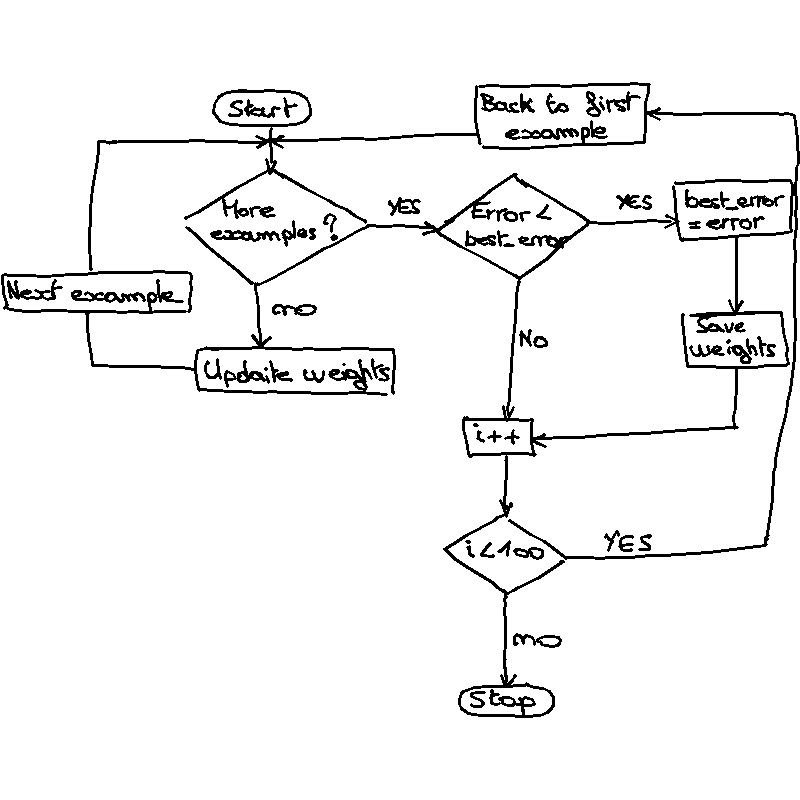 Start
Back to first
example
More
examples?
YES
Error <
best_error
YES
best_error
= error
Next example
no
Update weights
NO
Save
weights
i++
i<100
YES
no
Stop